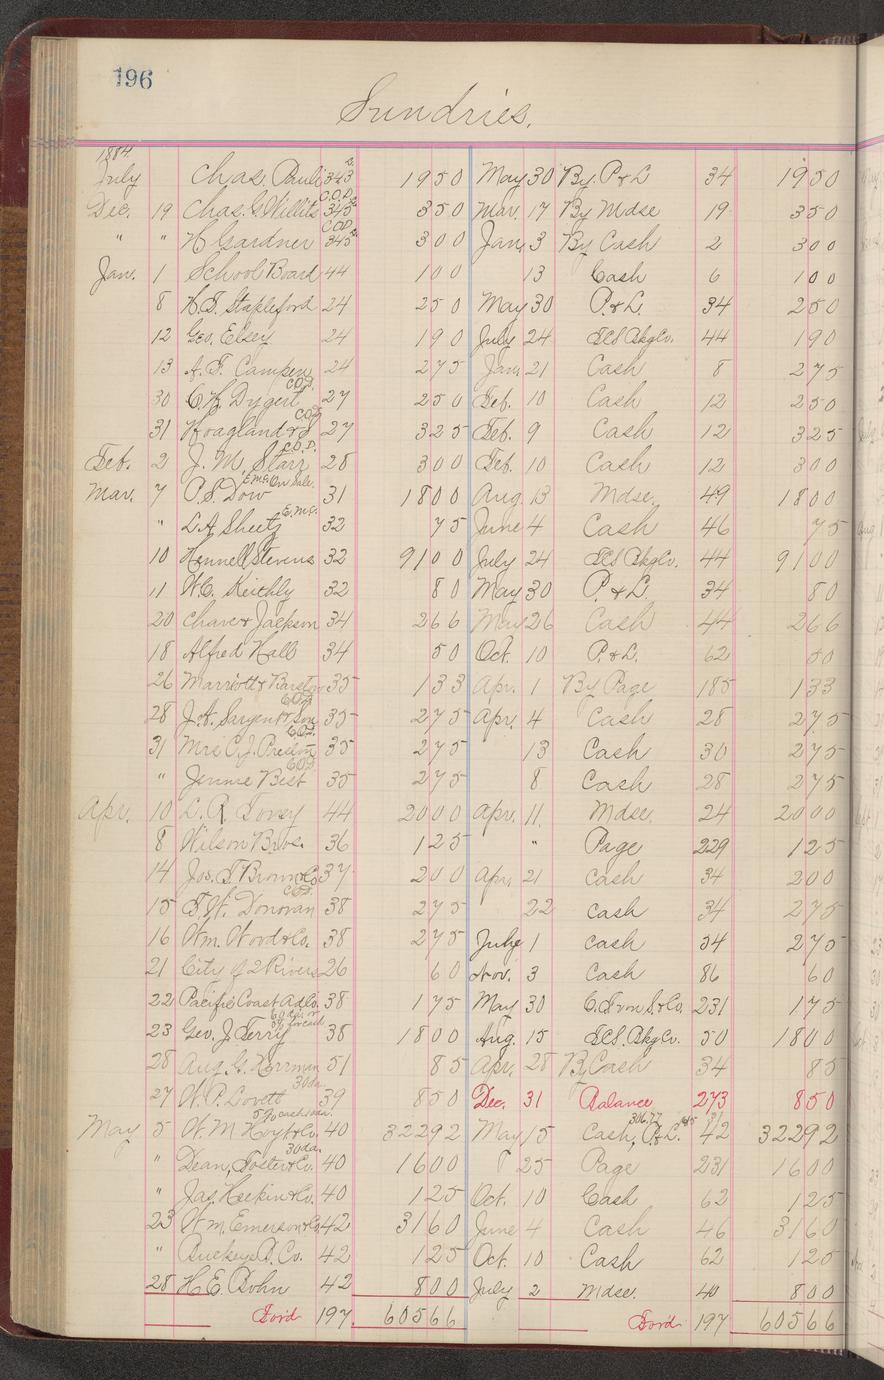 196
Sundries.
1884.
July Chas. Pauli 343 1950 May 30 By P & L 34 1950
Dec. 19 Chas. G. Willits C.O.D. 345 350 Mar. 17 By Mdse 19 350
" " H Gardner C.O.D. 345 300 Jan. 3 By Cash 2 300
Jan. 1 School Board 44 100 13 Cash 6 100
8 H.S. Stapleford 24 250 May 30 P. & L. 34 250
12 Geo. Elsey 24 190 July 24 Bkg Co. 44 190
13 A. F. Campen 24 275 Jan. 21 Cash 8 275
30 C. H. Dygert C.O.D. 27 250 Feb. 10 Cash 12 250
31 Hoagland & S C.O.D. 27 325 Feb. 9 Cash 12 325
Feb. 2 J. M. Starr C.O.D. 28 300 Feb. 10 Cash 12 300
Mar. 7 P. S. Dow On Sale. 31 1800 Aug. 13 Mdse. 49 1800
" L. A. Sheetz 32 75 June 4 Cash 46 75
10 Hennell Stevens 32 9100 July 24 Bkg Co. 44 9100
11 W. C. Keithly 32 80 May 30 P. & L. 34 80
20 Chaver Jackson 34 266 May 26 Cash 44 266
18 Alfred Hall 34 50 Oct. 10 P. & L. 62 50
26 Marriott & Barstow 35 133 Apr. 1 By Page 185 133
28 J. A. Sargent & Son C.O.D. 35 275 Apr. 4 Cash 28 275
31 Mrs C. J. Preston C.O.D. 35 275 13 Cash 30 275
" Jennie Best C.O.D. 35 275 8 Cash 28 275
Apr. 10 L. R. Tovey 44 2000 Apr. 11 Mdse. 24 2000
8 Wilson Bros. 36 125 " Page 229 125
14 Jos. T. Brown & Co 37 200 Apr. 21 Cash 34 200
15 T. W. Donovan C.O.D. 38 275 22 Cash 34 275
16 Wm. Wood & Co. 38 275 1 Cash 54 275
21 City of 2 Rivers 26 60 Nov. 3 Cash 86 60
22 Pacific Coast Ad Co. 38 175 May 30 231 175
23 Geo. J. Terry 38 1800 Aug. 15 Bkg Co. 50 1800
28 Aug. G. Herrman 51 85 Apr. 28 By Cash 34 85
27 W. P. Lovett 30 da. 39 850 Dec. 31 Balance 273 850
May 5 W. M. Hoyt & Co. 40 32292 May 15 Cash, 316.77 P. & L. 42 32292
" Dean, Foster & Co. 30 da. 40 1600 25 Page 231 1600
" Jas. Heekin & Co. 40 125 Oct. 10 Cash 62 125
23 Wm. Emerson & Co. 42 3160 June 4 Cash 46 3160
" Buckeye B. Co. 42 125 Oct. 10 Cash 62 125
28 H. E. Bohn 42 800 July 2 Mdse. 40 800
For'd 197 60566 For'd 197 60566